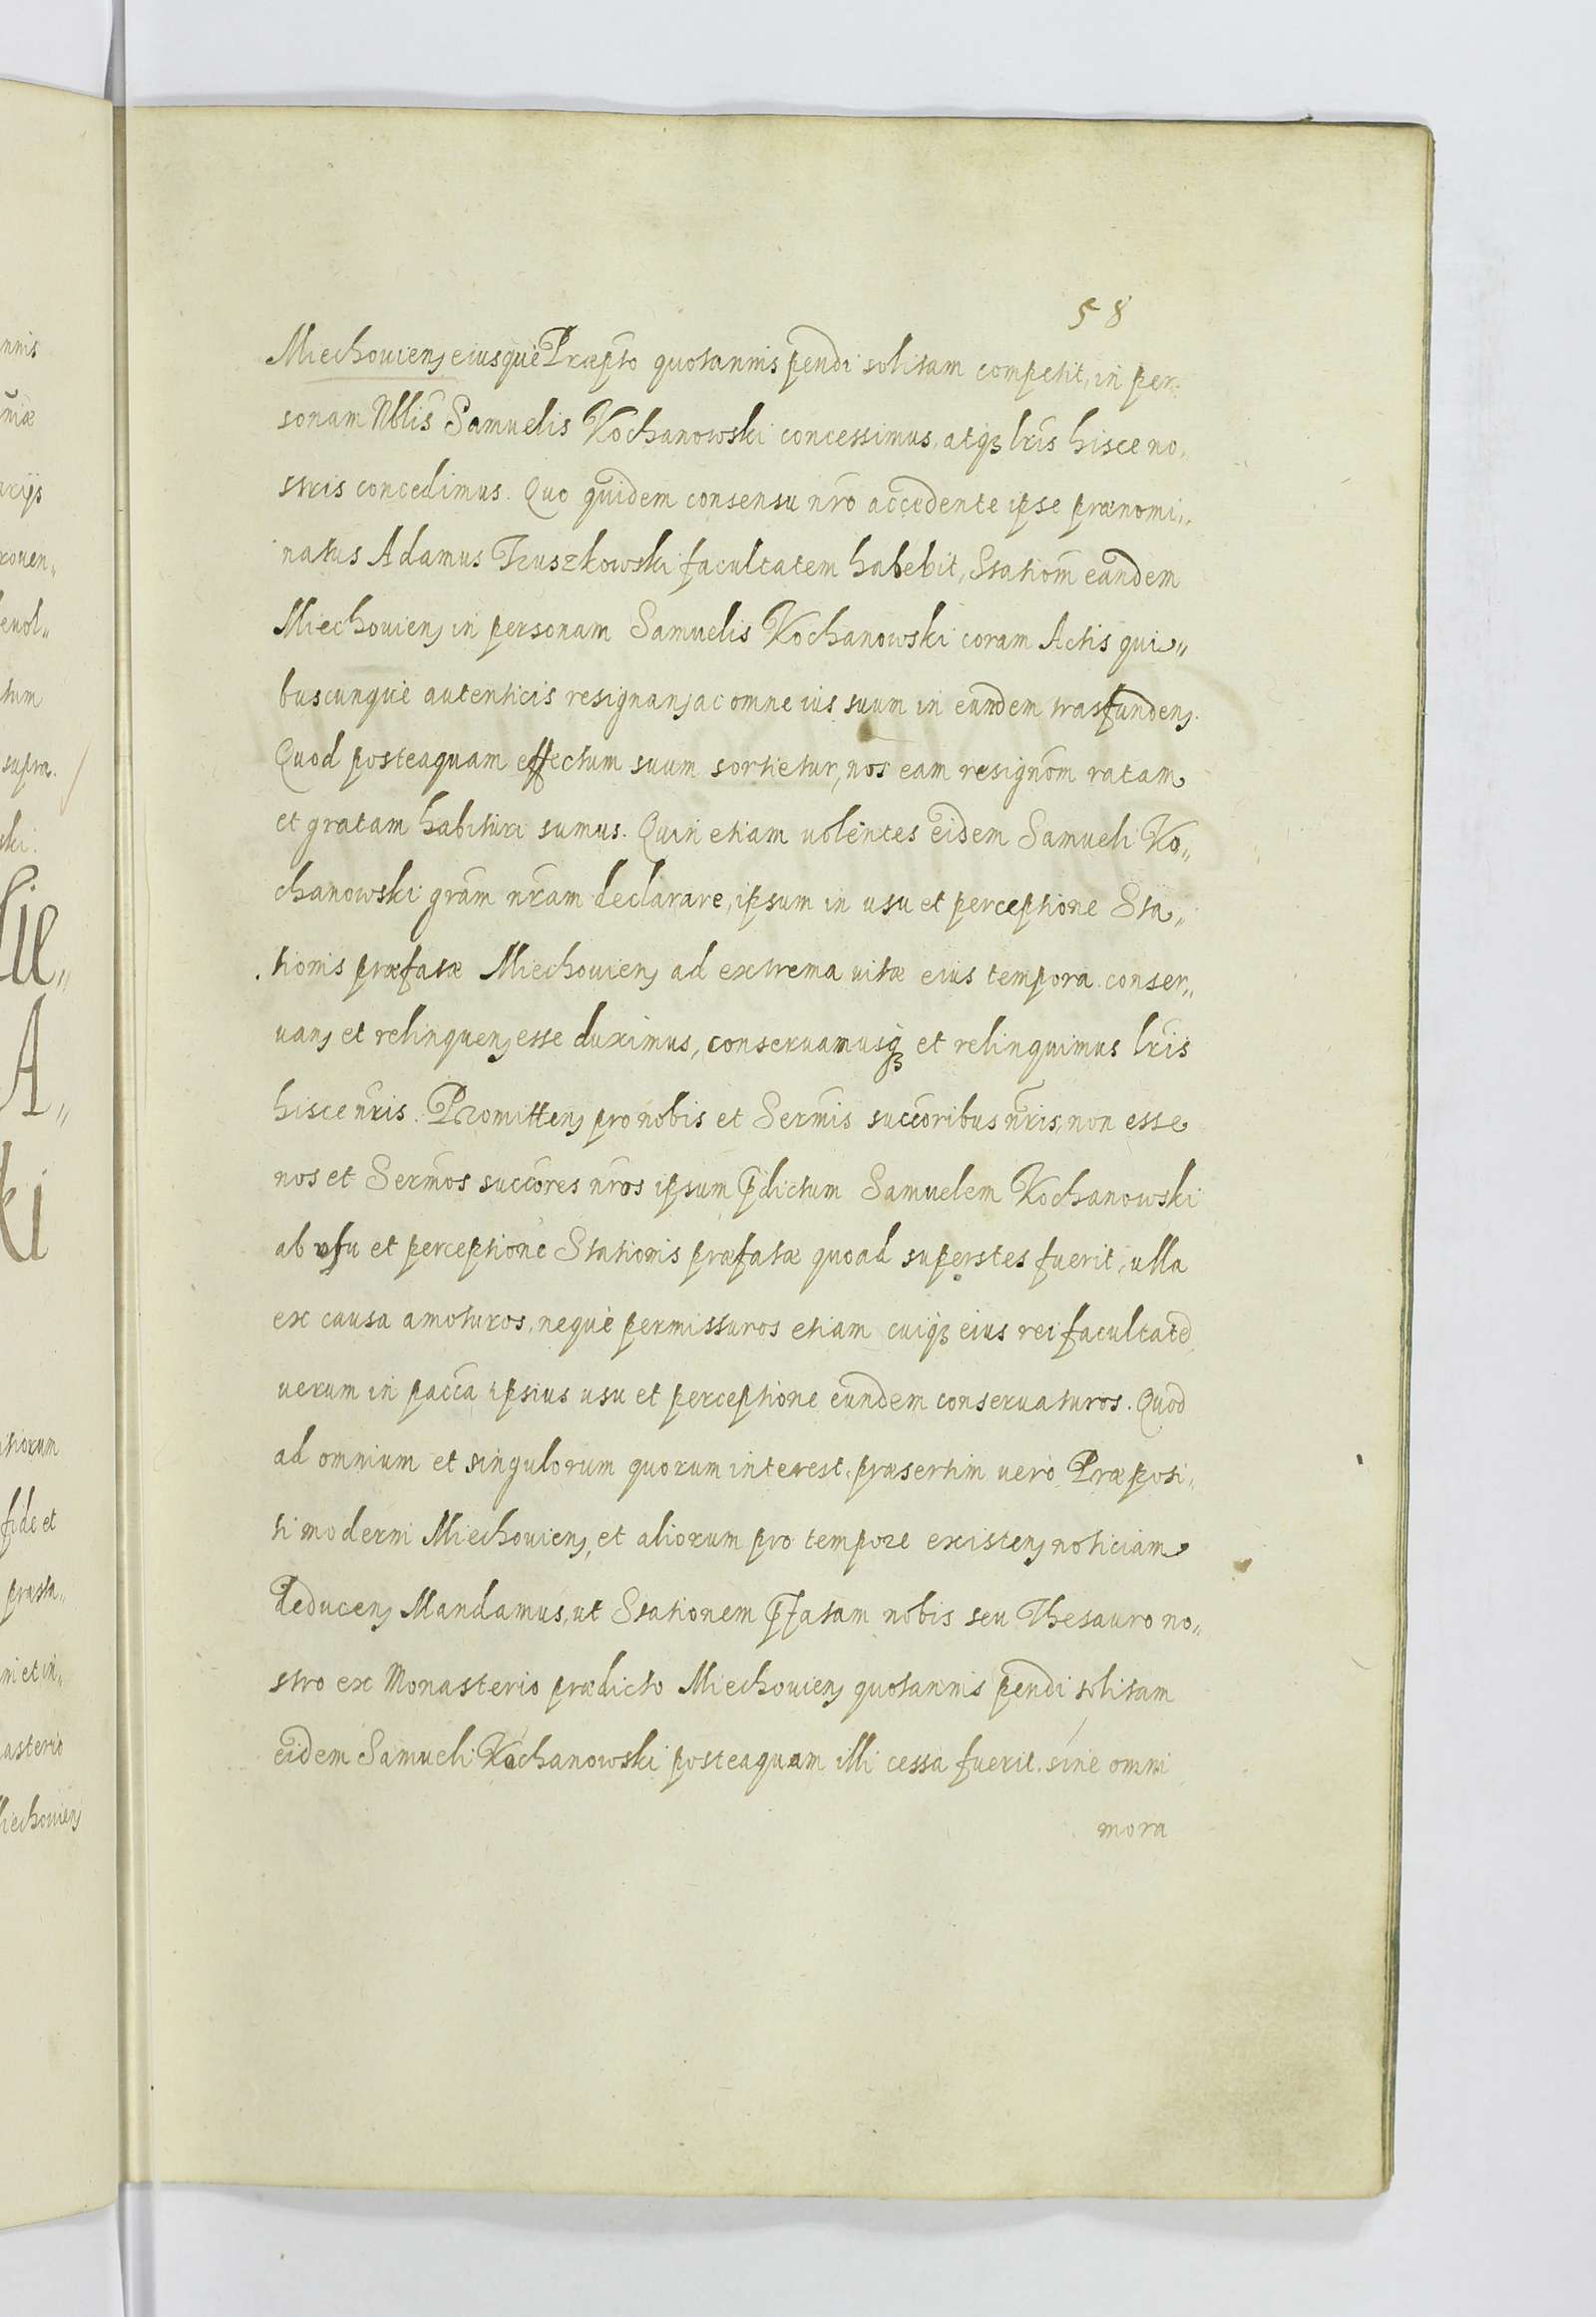 58
Miechouien, eiusque Præpto quotannis pendi solitam competit, in per
sonam Nblis Samuelis Kochanowski concessimus, atq3 lris hisce no„
stris concedimus. Quo quidem consensu nro accedente ipse prænomi„
natus Adamus Truszkowski facultatem habebit, Stationem eandem
Miechouien, in personam Samuelis Kochanowski coram Actis qui„
buscunque autenticis resignan, ac omne ius suum in eundem trasfunden,.
Quod posteaquam effectum suum sortietur, nos eam resignom ratam
et gratam habituri sumus. Quin etiam uolentes eidem Samueli Ko„
chanowski gram nram declarare, ipsum in usu et perceptione Sta„
tionis præfatæ Miechouien, ad extrema uitæ eius tempora conser„
uan, et relinquen, esse duximus, conseruamusq3 et relinquimus lris
hisce nris. Promitten, pro nobis et Sermis succoribus nris, non esse
nos et Sermos succores nros ipsum pdictum Samuelem Kochanowski
ab usu et perceptione Stationis præfatæ quoad superstes fuerit, ulla
ex causa amoturos, neque permissuros etiam cuiq3 eius rei facultate
uerum in pacca ipsius usu et perceptione eundem conseruaturos. Quod
ad omnium et singulorum quorum interest, præsertim uero Præposi„
ti moderni Miechouien, et aliorum pro tempore existen, noticiam
deducen, Mandamus, ut Stationem pfatam nobis seu Thesauro no„
stro ex Monasterio prædicto Miechouien, quotannis pendi solitam
eidem Samueli Kochanowski posteaquam illi cessa fuerit, sine omni
mora